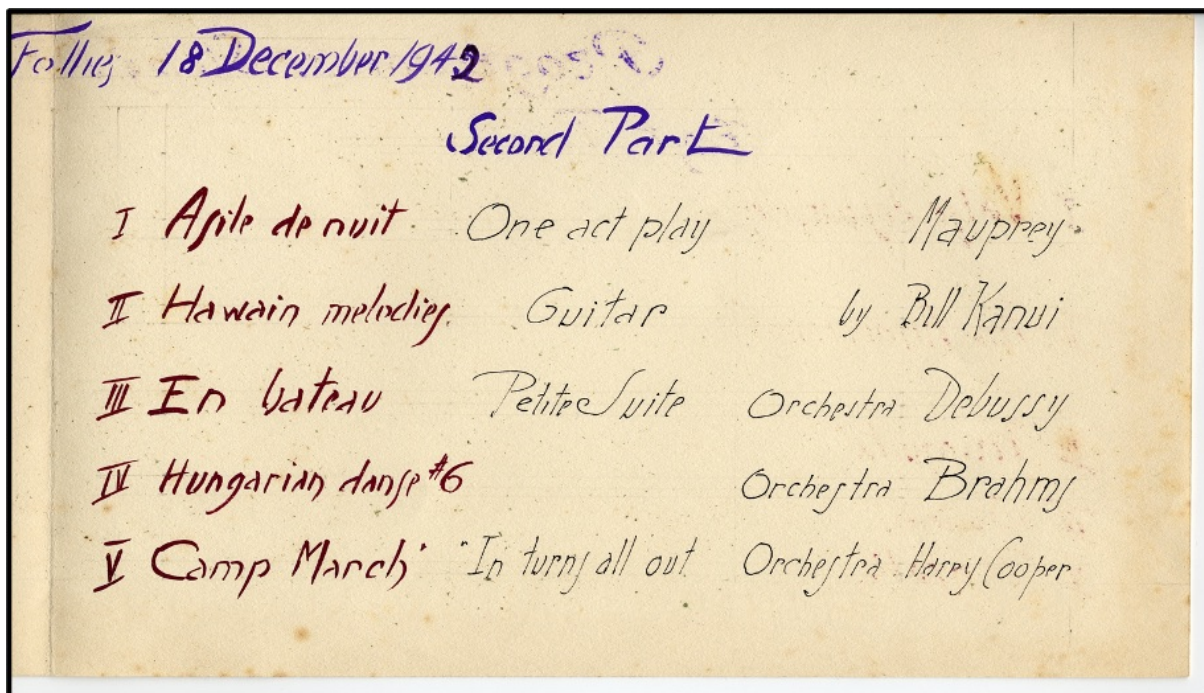 Follies 18 December 1942
Second Part
I Asile de nuit One act play Mauprey
II Hawain melodies Guitar by Bill Kanui
III En bateau Petite Suite Orchestra Debussy
IV Hungarian danse #6 Orchestra Brahms
V Camp March " "In turns all out Orchestra Harry Cooper